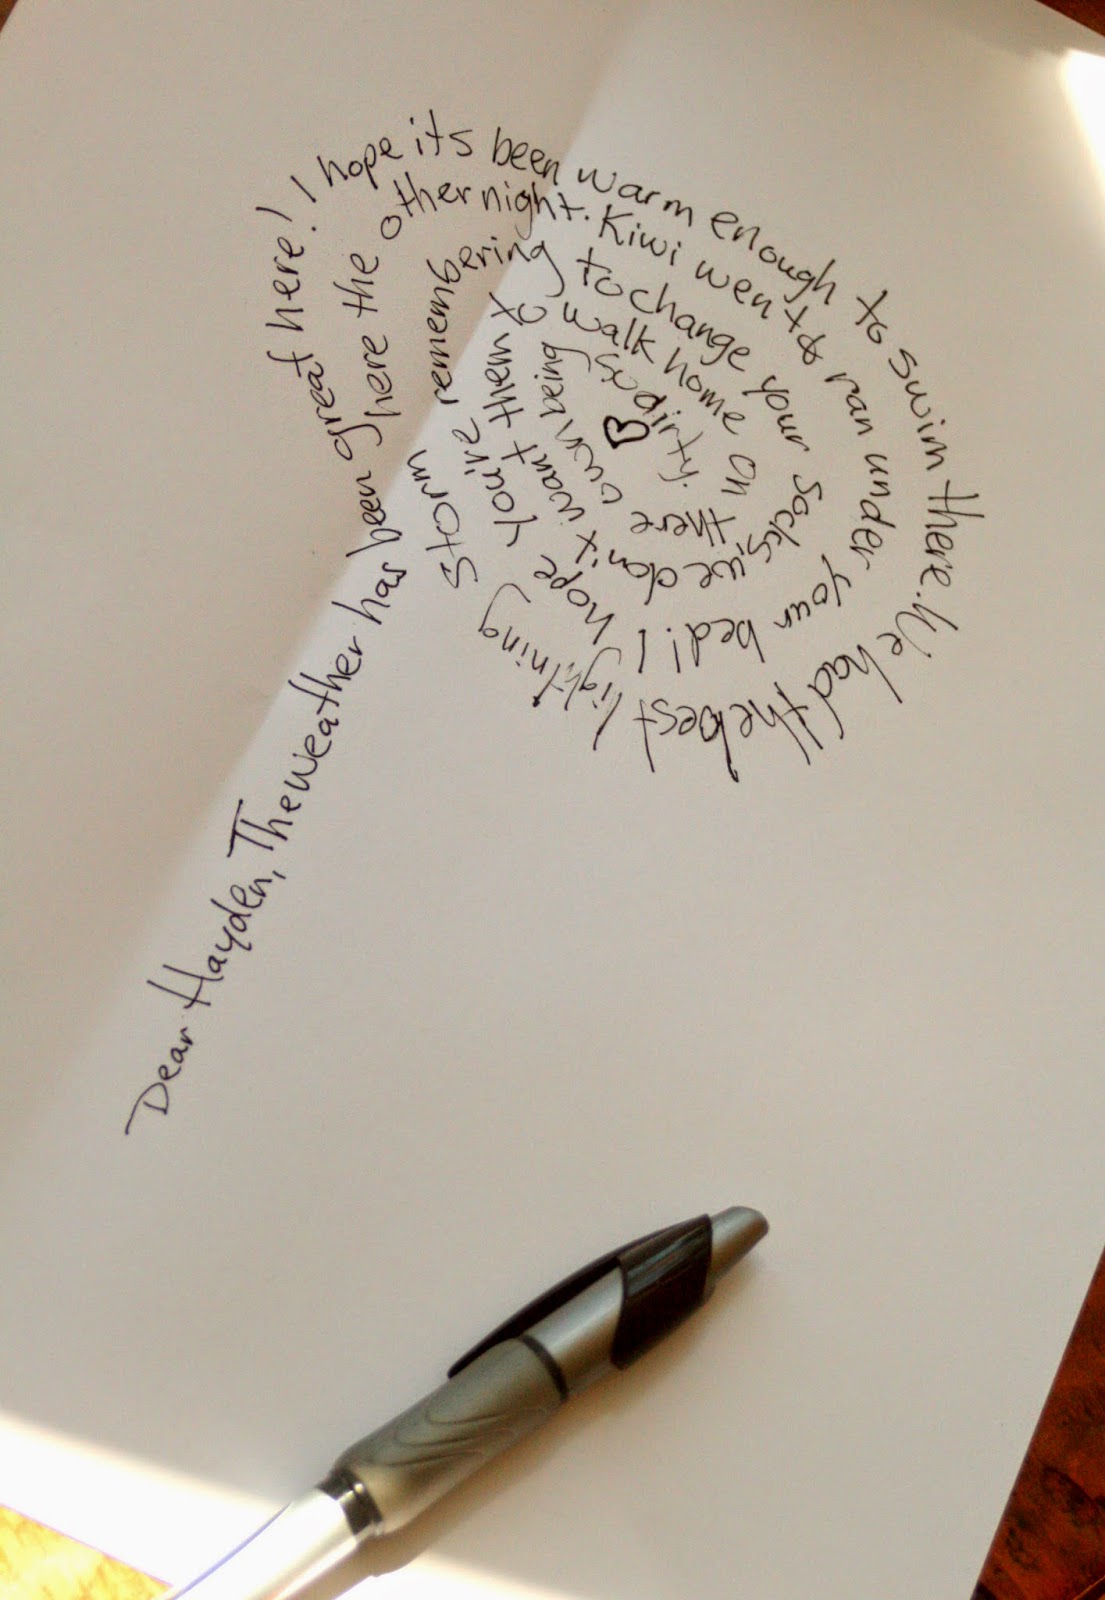 Dear Hayden, The weather has been great here! I hope its been warm enough to swim there. We had the best lightning storm here the other night. Kiwi went & ran under your bed! I hope you're remembering to change your socks, we don't want them to walk home on there own being so dirty. ♡